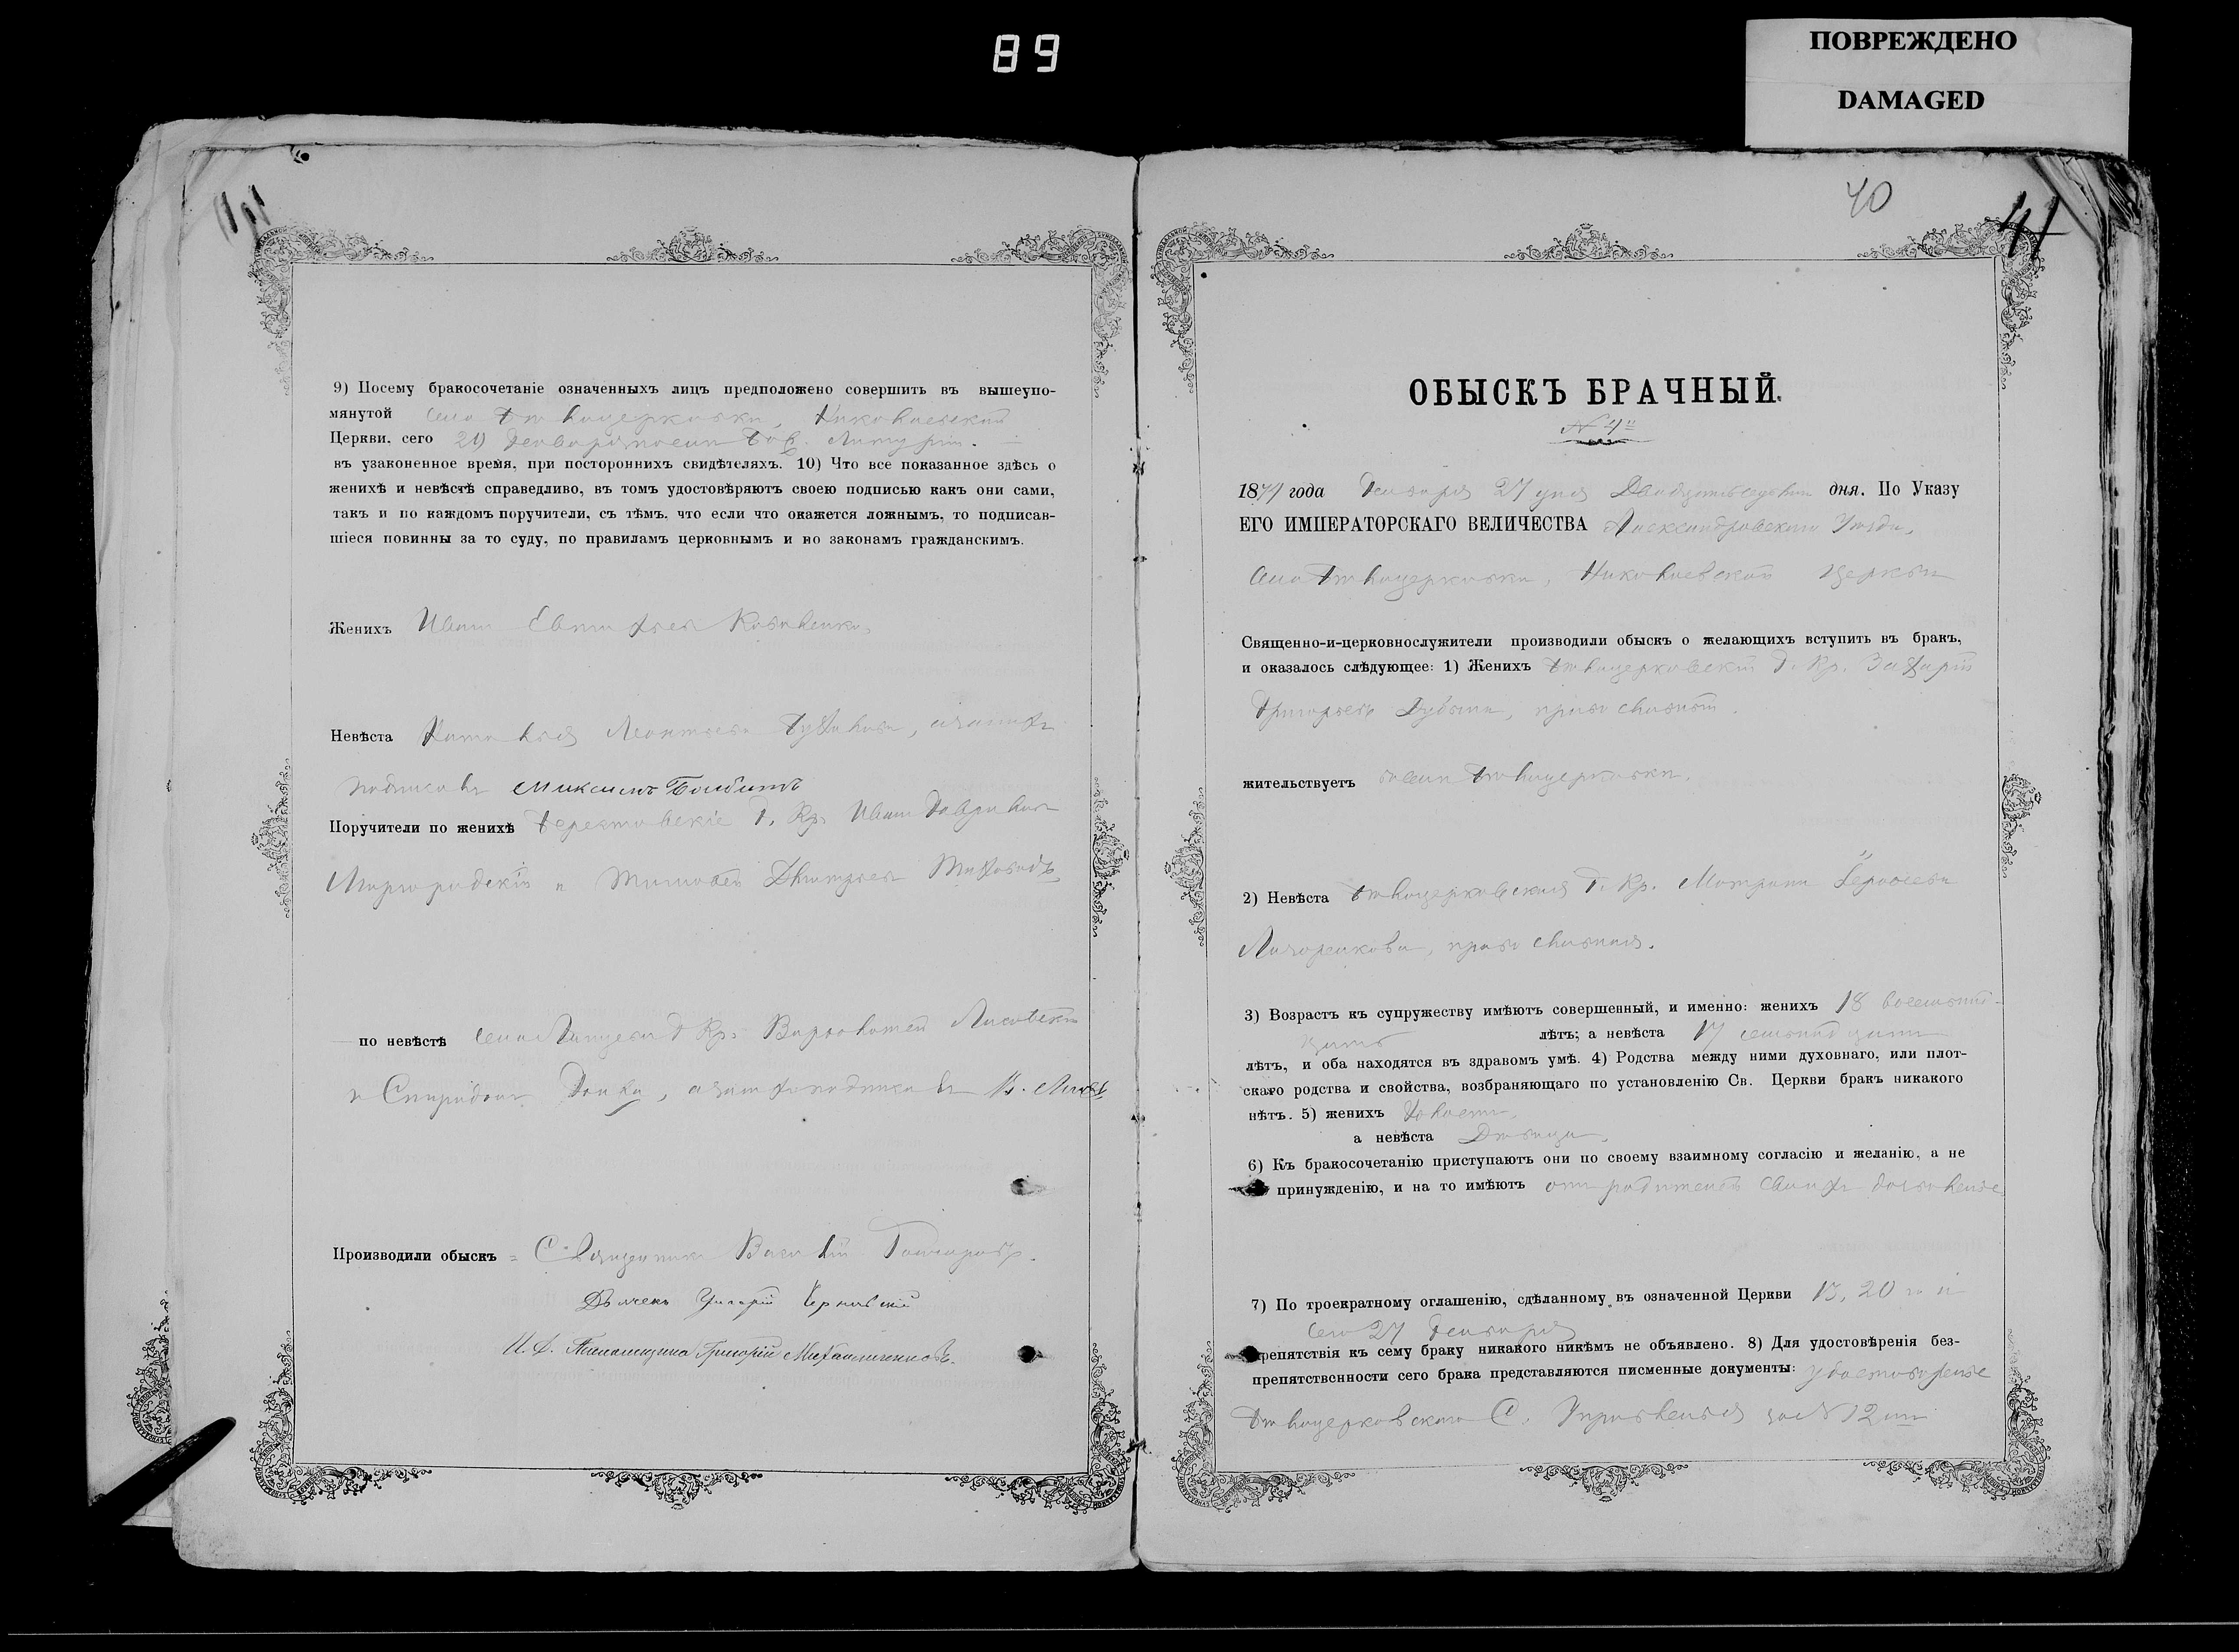 89
ПОВРЕЖДЕНО
DAMAGED
9) Посему бракосочетаніе означенныхъ лицъ предположено совершить въ вышеупо-
мянутой села Николаевской
Церкви, сего 20 Генваря после Литургіи.
въ узаконенное время, при постороннихъ свидѣтеляхъ. 10) Что все показанное здѣсь о
женихѣ и невѣстѣ справедливо, въ томъ удостовѣряютъ своею подписью какъ они сами,
такъ и по каждомъ поручители, съ тѣмъ, что если что окажется ложнымъ, то подписав-
шіеся повинны за то суду, по правиламъ церковнымъ и по законамъ гражданскимъ.
Женихъ Иванъ
Невѣста Наталья Леонтьева
Максимъ
Поручители по женихѣ Г. Кр. Иванъ Гавриловъ
Миргородскій и Тимофей Дмитріевъ
по невѣстѣ села Кр. Варфоломей Лисовскій
и Спиридонъ
Производили обыскъ = Священникъ Василій Гончаровъ.
Дьячекъ Григорій Чернявскій
И. д. Пономаря Григорій Михайличенковъ.
40
41
ОБЫСКЪ БРАЧНЫЙ.
№ 4й
1874 года Генваря 27 дня Двадцатьседьмого дня. По Указу
ЕГО ИМПЕРАТОРСКАГО ВЕЛИЧЕСТВА Александровскаго Уѣзда,
села Бѣлоцерковки, Николаевской церкви
Священно-и-церковнослужители производили обыскъ о желающихъ вступить въ бракъ,
и оказалось слѣдующее: 1) Женихъ Бѣлоцерковскій Г. Кр. Захарій
Григорьевъ Дубина, православный.
жительствуетъ въ селѣ Бѣлоцерковки.
2) Невѣста Бѣлоцерковская Г. Кр. Матрона
Лазоренкова, православная.
3) Возрастъ къ супружеству имѣютъ совершенный, и именно: женихъ 18 восемнад-
цать лѣтъ; а невѣста 17 семнадцати
лѣтъ, и оба находятся въ здравомъ умѣ. 4) Родства между ними духовнаго, или плот-
скаго родства и свойства, возбраняющаго по установленію Св. Церкви бракъ никакого
нѣтъ. 5) женихъ Холостъ,
а невѣста Дѣвица.
6) Къ бракосочетанію приступаютъ они по своему взаимному согласію и желанію, а не
принужденію, и на то имѣютъ отъ родителей своихъ дозволеніе
7) По троекратному оглашенію, сдѣланному въ означенной Церкви 13, 20 го и
сего 27 Генваря
препятствія къ сему браку никакого никѣмъ не объявлено. 8) Для удостовѣренія без-
препятственности сего брака представляются писменные документы: удостовѣреніе
Бѣлоцерковскаго С. Управленія за № 12